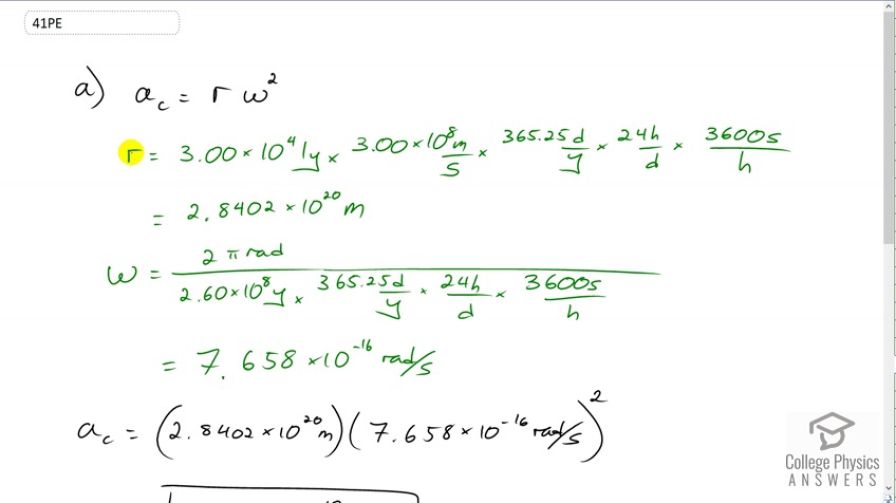 41PE
a) a_c = r ω²
r = 3.00 × 10⁴ ly × 3.00 × 10⁸ m/s × 365.25d/y × 24h/d × 3600s/h
= 2.8402 × 10²⁰ m
ω = 2π rad / 2.60 × 10⁸ y × 365.25d/y × 24h/d × 3600s/h
= 7.658 × 10⁻¹⁶ rad/s
a_c = (2.8402 × 10²⁰ m)(7.658 × 10⁻¹⁶ rad/s)²
College Physics
ANSWERS